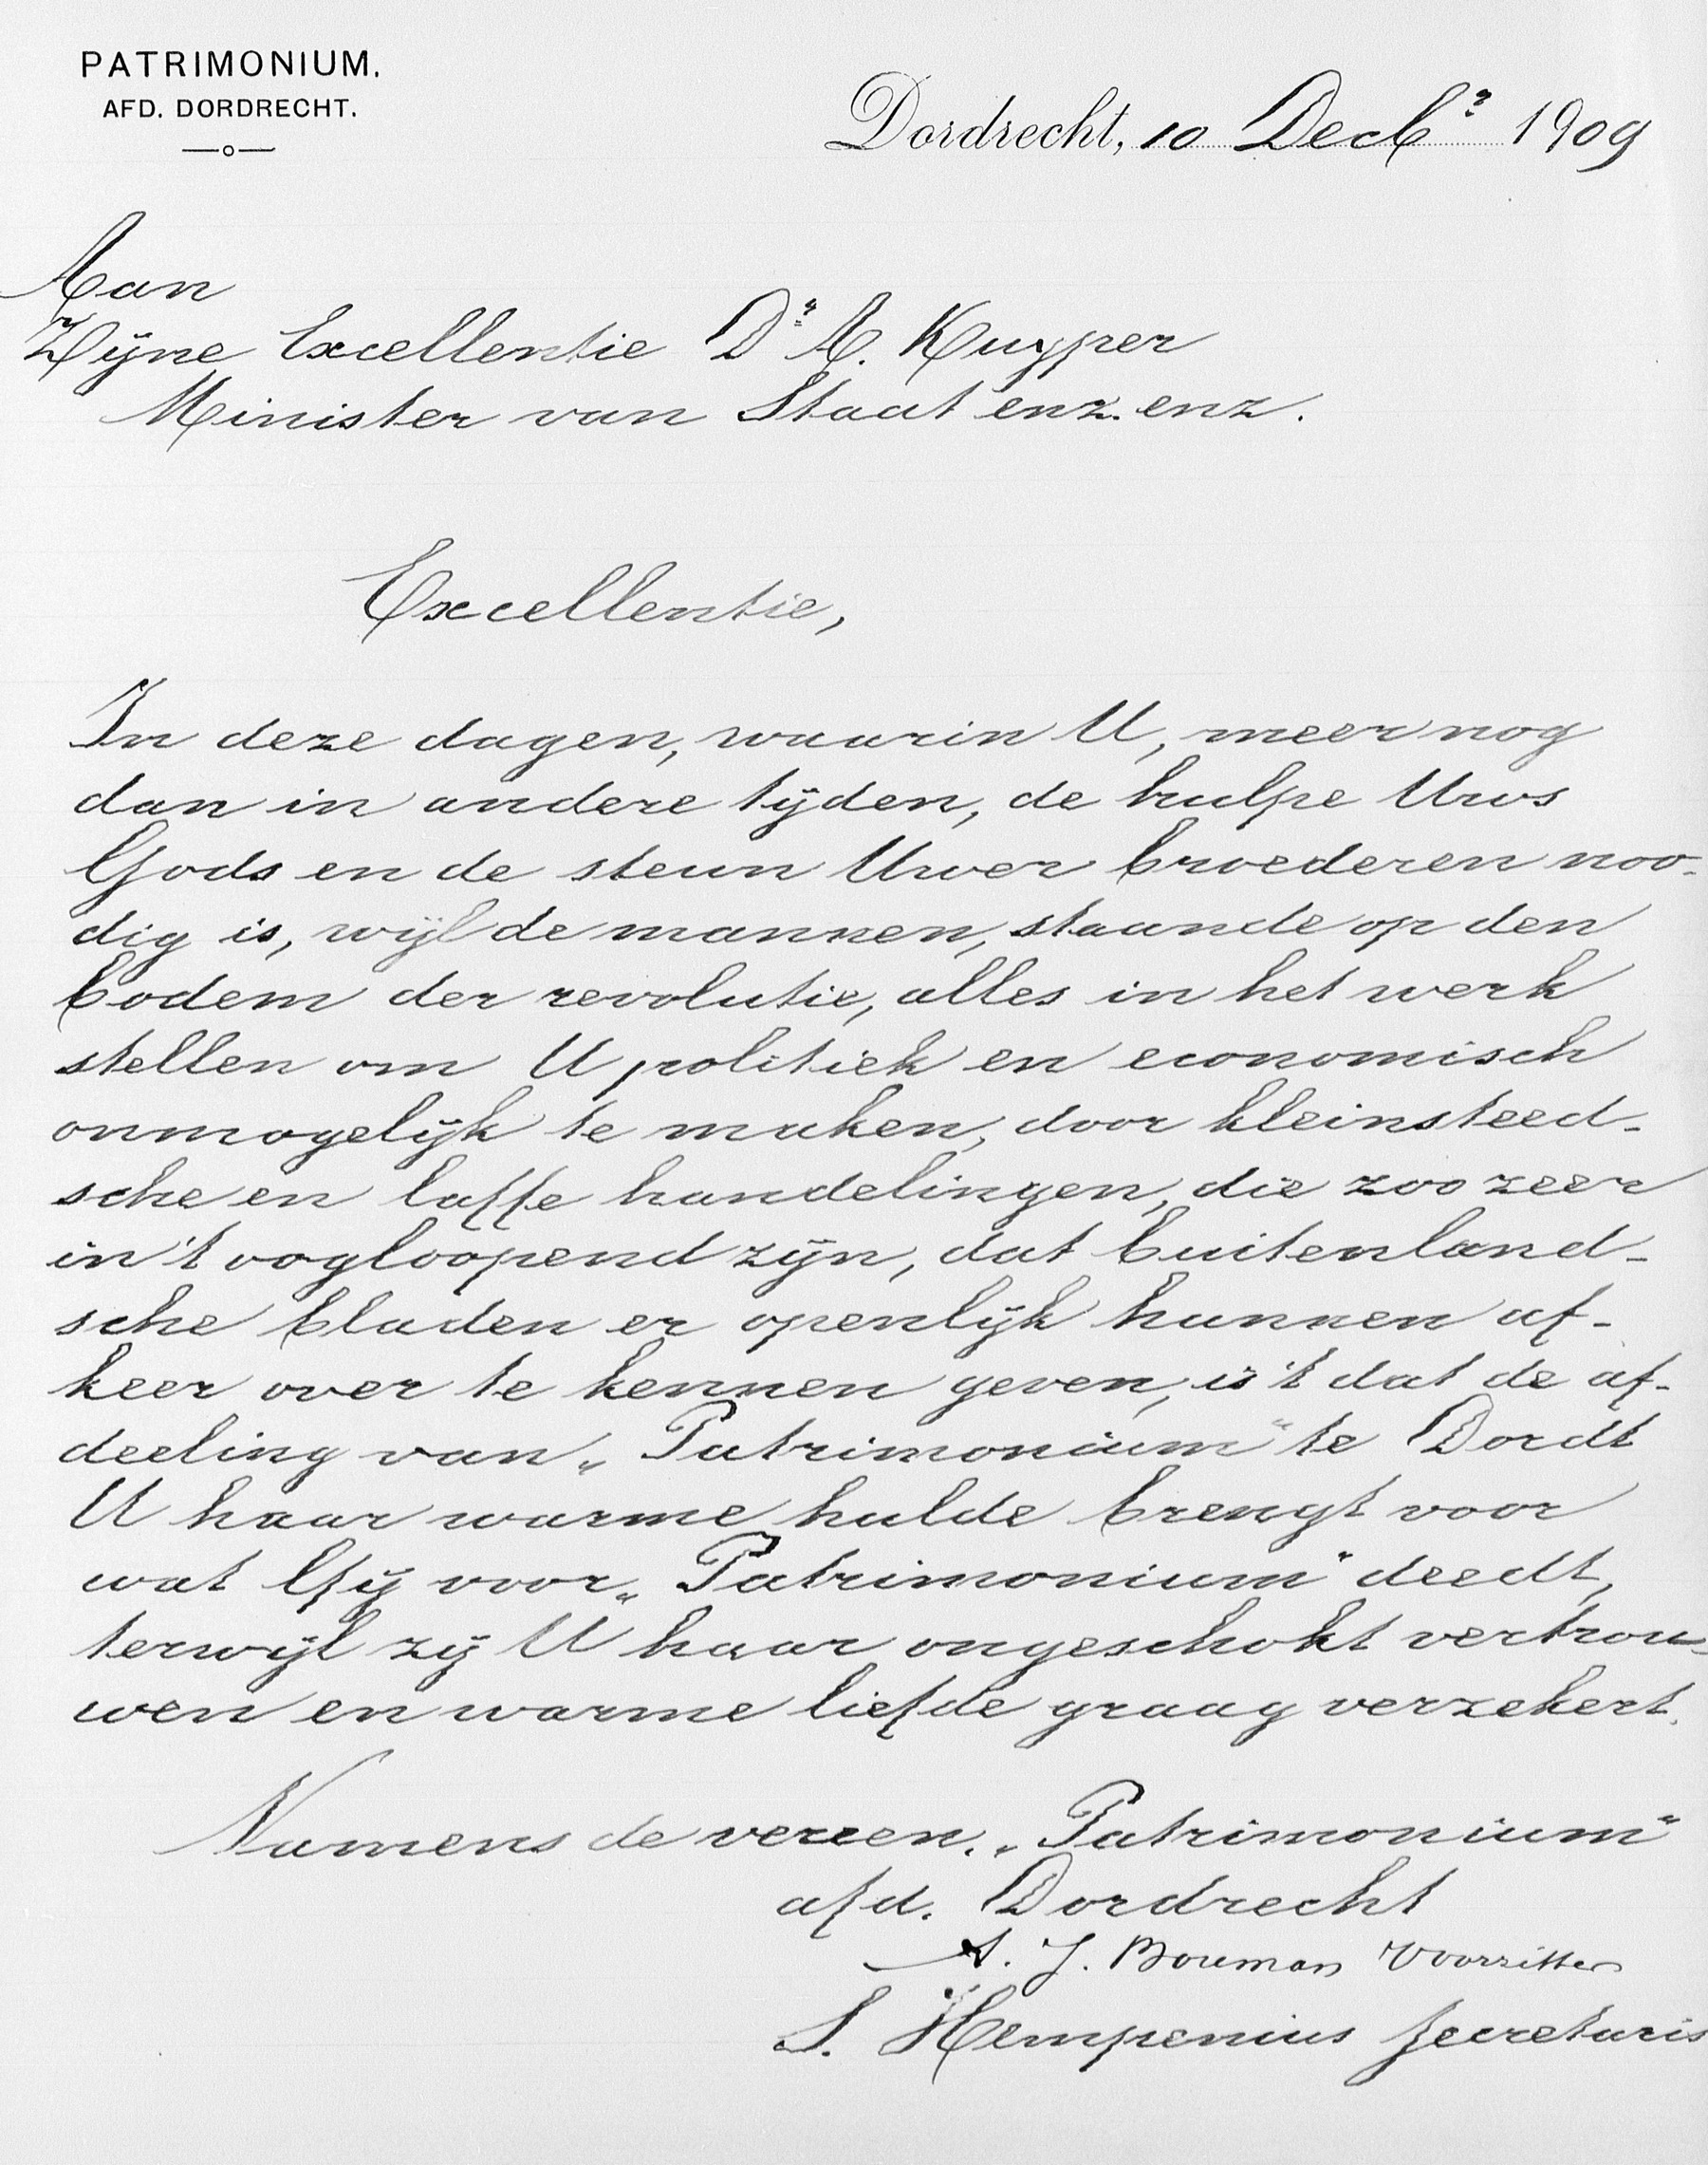 PATRIMONIUM.
AFD. DORDRECHT.
Dordrecht, 10 Decbr 1909
Aan
Zijne Excellentie Dr A. Kuyper
Minister van Staat enz. enz.
Excellentie,
In deze dagen, waarin U, meer nog
dan in andere tijden, de hulpe Uws
Gods en de steun Uwer broederen noo-
dig is, wijl de mannen, staande op den
bodem der revolutie, alles in het werk
stellen om U politiek en economisch
onmogelijk te maken, door kleinsteed-
sche en laffe handelingen, die zoo zeer
in 't oogloopend zijn, dat buitenland-
sche bladen er openlijk hunnen af-
keer over te kennen geven, is 't dat de af-
deeling van „Patrimonium" te Dordt
U haar warme hulde brengt voor
wat Gij voor „Patrimonium" deedt,
terwijl zij U haar ongeschokt vertrou-
wen en warme liefde graag verzekert.
Namens de vereen. „Patrimonium"
afd. Dordrecht
A. J. Bouman Voorzitter
S. Hempenius Secretaris